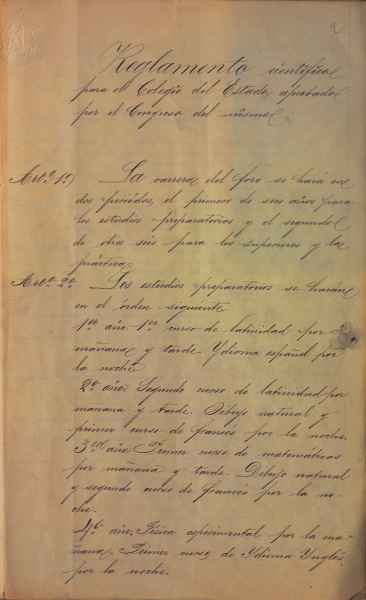 2
Reglamento científico
para el Colegio del Estado, aprobado
por el Congreso del mismo
Art.o 1o) La carrera del foro se hará en
dos periódos, el primero de seis años para
los estudios preparatorios y el segundo
de otros seis para los superiores y la
práctica.
Art.o 2o Los estudios preparatorios se harán
en el orden siguiente
1er año. 1er curso de latinidad por
mañana y tarde. Ydioma español por
la noche
2o año. Segundo curso de latinidad por
manana y tarde. Dibujo natural y
primer curso de francés por la noche.
3er año. Primer curso de matemáticas
por mañana y tarde. Debujo natural
y segundo curso de francés por la no-
che.
4o año, Física esperimental por la ma-
ñana. Primer curso de Ydioma Ynglés,
por la noche.